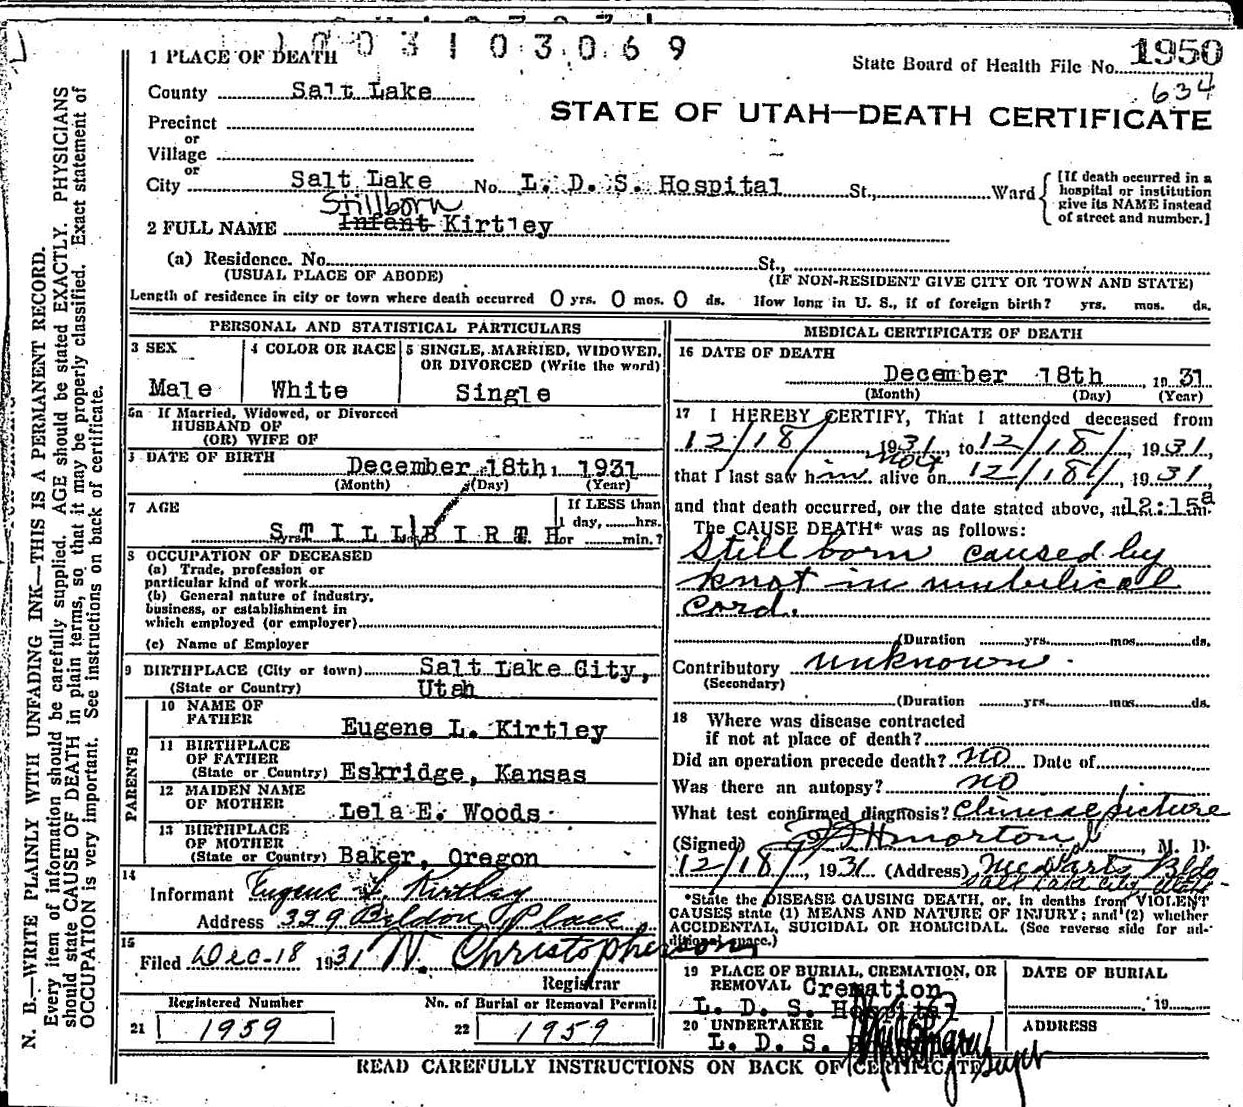 1003103069
1950
State Board of Health File No.
634
STATE OF UTAH—DEATH CERTIFICATE
1 PLACE OF DEATH
County Salt Lake
Precinct
or
Village
or
City Salt Lake No. L. D. S. Hospital St., Ward
[If death occurred in a
hospital or institution
give its NAME instead
of street and number.]
Stillborn
2 FULL NAME Infant Kirtley
(a) Residence. No. St.,
(USUAL PLACE OF ABODE) (IF NON-RESIDENT GIVE CITY OR TOWN AND STATE)
Length of residence in city or town where death occurred 0 yrs. 0 mos. 0 ds. How long in U. S., if of foreign birth? yrs. mos. ds.
PERSONAL AND STATISTICAL PARTICULARS
3 SEX
Male
4 COLOR OR RACE
White
5 SINGLE, MARRIED, WIDOWED,
OR DIVORCED (Write the word)
Single
5a If Married, Widowed, or Divorced
HUSBAND OF
(OR) WIFE OF
DATE OF BIRTH
December 18th, 1931
(Month) (Day) (Year)
7 AGE
STILLBIRTH
If LESS than
1 day, hrs.
or min.?
8 OCCUPATION OF DECEASED
(a) Trade, profession or
particular kind of work
(b) General nature of industry,
business, or establishment in
which employed (or employer)
(c) Name of Employer
9 BIRTHPLACE (City or town) Salt Lake City,
(State or Country) Utah
PARENTS
10 NAME OF
FATHER Eugene L. Kirtley
11 BIRTHPLACE
OF FATHER
(State or Country) Eskridge, Kansas
12 MAIDEN NAME
OF MOTHER Lela E. Woods
13 BIRTHPLACE
OF MOTHER
(State or Country) Baker, Oregon
14
Informant Eugene L Kirtley
Address 329 Beldon Place
15
Filed Dec-18 1931 N. Christopherson
Registrar
Registered Number
21 1959
No. of Burial or Removal Permit
22 1959
MEDICAL CERTIFICATE OF DEATH
16 DATE OF DEATH
December 18th, 1931
(Month) (Day) (Year)
17 I HEREBY CERTIFY, That I attended deceased from
12/18/ 1931, to 12/18/, 1931,
not
that I last saw him alive on 12/18/, 1931
and that death occurred, on the date stated above, at 12:15a m.
The CAUSE DEATH* was as follows:
Still born caused by
knot in umbilical
cord.
(Duration yrs. mos. ds.
Contributory unknown.
(Secondary)
(Duration yrs. mos. ds.
18 Where was disease contracted
if not at place of death?
Did an operation precede death? no Date of
Was there an autopsy? no
What test confirmed diagnosis? Clinical picture
(Signed) Morton, M. D.
12/18/, 1931 (Address) Bldg
Salt Lake City, Utah
*State the DISEASE CAUSING DEATH, or, in deaths from VIOLENT
CAUSES state (1) MEANS AND NATURE OF INJURY; and (2) whether
ACCIDENTAL, SUICIDAL OR HOMICIDAL. (See reverse side for ad-
ditional space.)
19 PLACE OF BURIAL, CREMATION, OR
REMOVAL Cremation
L. D. S. Hospital
DATE OF BURIAL
19
20 UNDERTAKER
L. D. S.
ADDRESS
READ CAREFULLY INSTRUCTIONS ON BACK OF CERTIFICATE
N. B.—WRITE PLAINLY WITH UNFADING INK—THIS IS A PERMANENT RECORD.
Every item of information should be carefully supplied. AGE should be stated EXACTLY. PHYSICIANS
should state CAUSE OF DEATH in plain terms, so that it may be properly classified. Exact statement of
OCCUPATION is very important. See instructions on back of certificate.